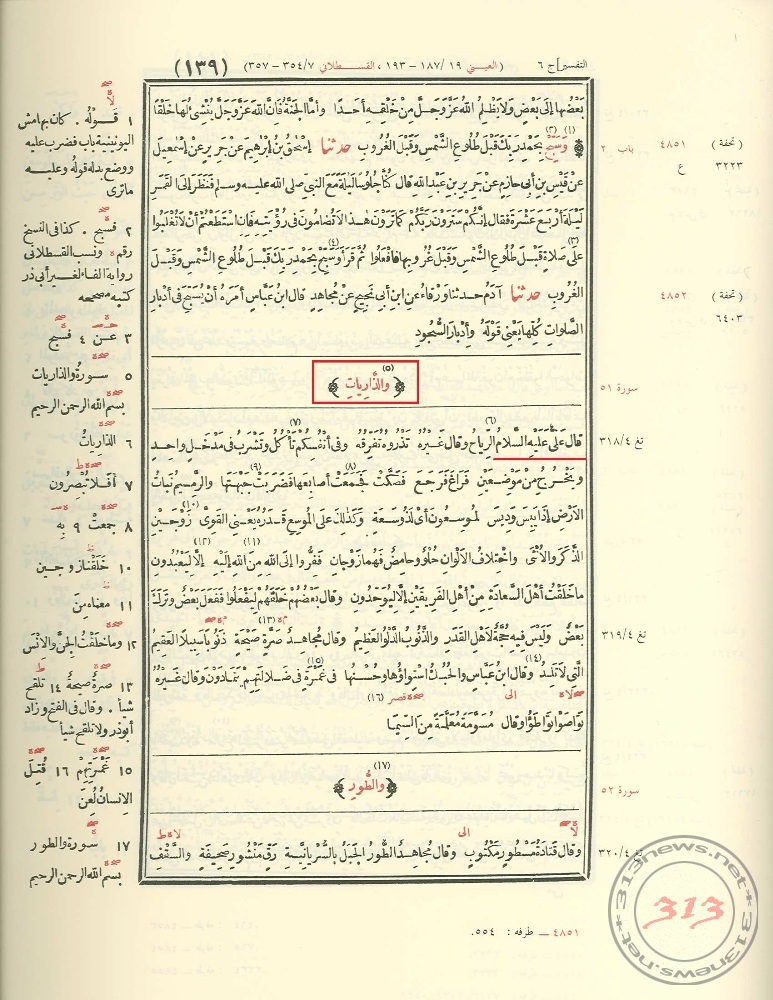 التفسير/ج ٦
(العيني ١٩/ ١٨٧ - ١٩٣، القسطلاني ٧/ ٣٥٤ - ٣٥٧)
(١٣٩)
بَعْضُهَا إِلَى بَعْضٍ وَلَا يَظْلِمُ اللهُ عَزَّ وَجَلَّ مِنْ خَلْقِهِ أَحَدًا وَأَمَّا الْجَنَّةُ فَإِنَّ اللهَ عَزَّ وَجَلَّ يُنْشِئُ لَهَا خَلْقًا
(١) (٢)
وَسَبِّحْ بِحَمْدِ رَبِّكَ قَبْلَ طُلُوعِ الشَّمْسِ وَقَبْلَ الْغُرُوبِ حدثنا إِسْحٰقُ بْنُ إِبْرٰهِيمَ عَنْ جَرِيرٍ عَنْ إِسْمٰعِيلَ
عَنْ قَيْسِ بْنِ أَبِي حَازِمٍ عَنْ جَرِيرِ بْنِ عَبْدِ اللهِ قَالَ كُنَّا جُلُوسًا لَيْلَةً مَعَ النَّبِيِّ صلى الله عليه وسلم فَنَظَرَ إِلَى الْقَمَرِ
لَيْلَةَ أَرْبَعَ عَشْرَةَ فَقَالَ إِنَّكُمْ سَتَرَوْنَ رَبَّكُمْ كَمَا تَرَوْنَ هٰذَا لَا تُضَامُونَ فِي رُؤْيَتِهِ فَإِنِ اسْتَطَعْتُمْ أَنْ لَا تُغْلَبُوا
(٣) (٤)
عَلَى صَلَاةٍ قَبْلَ طُلُوعِ الشَّمْسِ وَقَبْلَ غُرُوبِهَا فَافْعَلُوا ثُمَّ قَرَأَ وَسَبِّحْ بِحَمْدِ رَبِّكَ قَبْلَ طُلُوعِ الشَّمْسِ وَقَبْلَ
الْغُرُوبِ حدثنا آدَمُ حَدَّثَنَا وَرْقَاءُ عَنِ ابْنِ أَبِي نَجِيحٍ عَنْ مُجَاهِدٍ قَالَ ابْنُ عَبَّاسٍ أَمَرَهُ أَنْ يُسَبِّحَ فِي أَدْبَارِ
الصَّلَوَاتِ كُلِّهَا يَعْنِي قَوْلَهُ وَإِدْبَارَ السُّجُودِ
(٥)
وَالذَّارِيَاتِ
(٦) (٧)
قَالَ عَلِيٌّ عَلَيْهِ السَّلَامُ الرِّيَاحُ وَقَالَ غَيْرُهُ تَذْرُوهُ تُفَرِّقُهُ وَفِي أَنْفُسِكُمْ تَأْكُلُ وَتَشْرَبُ فِي مَدْخَلٍ وَاحِدٍ
(٨) (٩)
وَيَخْرُجُ مِنْ مَوْضِعَيْنِ فَرَاغَ فَرَجَعَ فَصَكَّتْ فَجَمَعَتْ أَصَابِعَهَا فَضَرَبَتْ جَبْهَتَهَا وَالرَّمِيمُ نَبَاتُ
(١٠)
الْأَرْضِ إِذَا يَبِسَ وَدِيسَ لَمُوسِعُونَ أَيْ لَذُو سَعَةٍ وَكَذٰلِكَ عَلَى الْمُوسِعِ قَدَرُهُ يَعْنِي الْقَوِيَّ زَوْجَيْنِ
(١١) (١٢)
الذَّكَرَ وَالْأُنْثَى وَاخْتِلَافُ الْأَلْوَانِ حُلْوٌ وَحَامِضٌ فَهُمَا زَوْجَانِ فَفِرُّوا إِلَى اللهِ مِنَ اللهِ إِلَيْهِ إِلَّا لِيَعْبُدُونِ
مَا خَلَقْتُ أَهْلَ السَّعَادَةِ مِنْ أَهْلِ الْفَرِيقَيْنِ إِلَّا لِيُوَحِّدُونِ وَقَالَ بَعْضُهُمْ خَلَقَهُمْ لِيَفْعَلُوا فَفَعَلَ بَعْضٌ وَتَرَكَ
(١٣)
بَعْضٌ وَلَيْسَ فِيهِ حُجَّةٌ لِأَهْلِ الْقَدَرِ وَالذَّنُوبُ الدَّلْوُ الْعَظِيمُ وَقَالَ مُجَاهِدٌ صَرَّةٍ صَيْحَةٍ ذَنُوبًا سَبِيلًا الْعَقِيمُ
(١٤) (١٥)
الَّتِي لَا تَلِدُ وَقَالَ ابْنُ عَبَّاسٍ وَالْحُبُكُ اسْتِوَاؤُهَا وَحُسْنُهَا فِي غَمْرَةٍ فِي ضَلَالَتِهِمْ يَتَمَادَوْنَ وَقَالَ غَيْرُهُ
(١٦)
تَوَاصَوْا تَوَاطَؤُا وَقَالَ مُسَوَّمَةً مُعَلَّمَةً مِنَ السِّيمَا
(١٧)
وَالطُّورِ
وَقَالَ قَتَادَةُ مَسْطُورٍ مَكْتُوبٍ وَقَالَ مُجَاهِدٌ الطُّورُ الْجَبَلُ بِالسُّرْيَانِيَّةِ رَقٍّ مَنْشُورٍ صَحِيفَةٍ وَالسَّقْفِ
باب ٢
٤٨٥١
ع
(تحفة)
٣٢٢٣
٤٨٥٢
(تحفة)
٦٤٠٣
سورة ٥١
تغ ٣١٨/٤
تغ ٣١٩/٤
سورة ٥٢
تغ ٣٢٠/٤
١ قَوْلُهُ . كان بهامش
اليونينية باب فضرب عليه
ووضع بدله قوله وعليه
ماترى
٢ فسبح . كذا فى النسخ
رقم ونسب القسطلانى
رواية الفاء لغير أبى ذر
كتبه مصححه
٣ عن ٤ فسبح
٥ سورة والذاريات
بسم الله الرحمن الرحيم
٦ الذاريات
٧ أفلا تبصرون
٨ جمعت ٩ به
١٠ خلقنا زوجين
١١ معناه من
١٢ وما خلقت الجن والانس
١٣ صرة صيحة ١٤ تلقح
شيأ . وقال فى الفتح وزاد
أبوذر ولا تلقح شيأ
١٥ غمرتهم ١٦ قتل
الانسان لعن
١٧ سورة والطور
بسم الله الرحمن الرحيم
٤٨٥١ ـ طرفه : ٥٥٤.
313news.net
313
313news.net